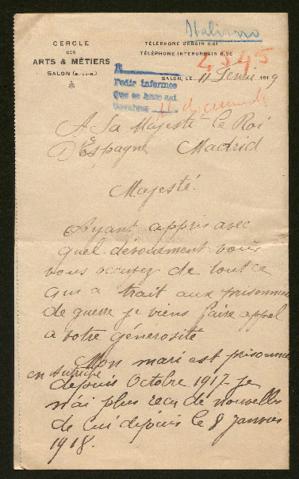 Italiano
CERCLE
DES
ARTS & MÉTIERS
SALON (B.-D.-R.)
TÉLÉPHONE URBAIN 0.21
TÉLÉPHONE INTERURBAIN
2,345
SALON, LE 11 Février 1919
Pedir informes
Que se haga así
A Sa Majesté Le Roi
D'Espagne Madrid
Majesté.
Ayant appris avec
quel dévouement vous
vous occupez de tout ce
qui a trait aux prisonniers
de guerre je viens faire appel
a votre générosité
Mon mari est prisonnier
en Autriche
depuis Octobre 1917 je
n'ai plus reçu de nouvelles
de lui depuis le 8 janvier
1918.